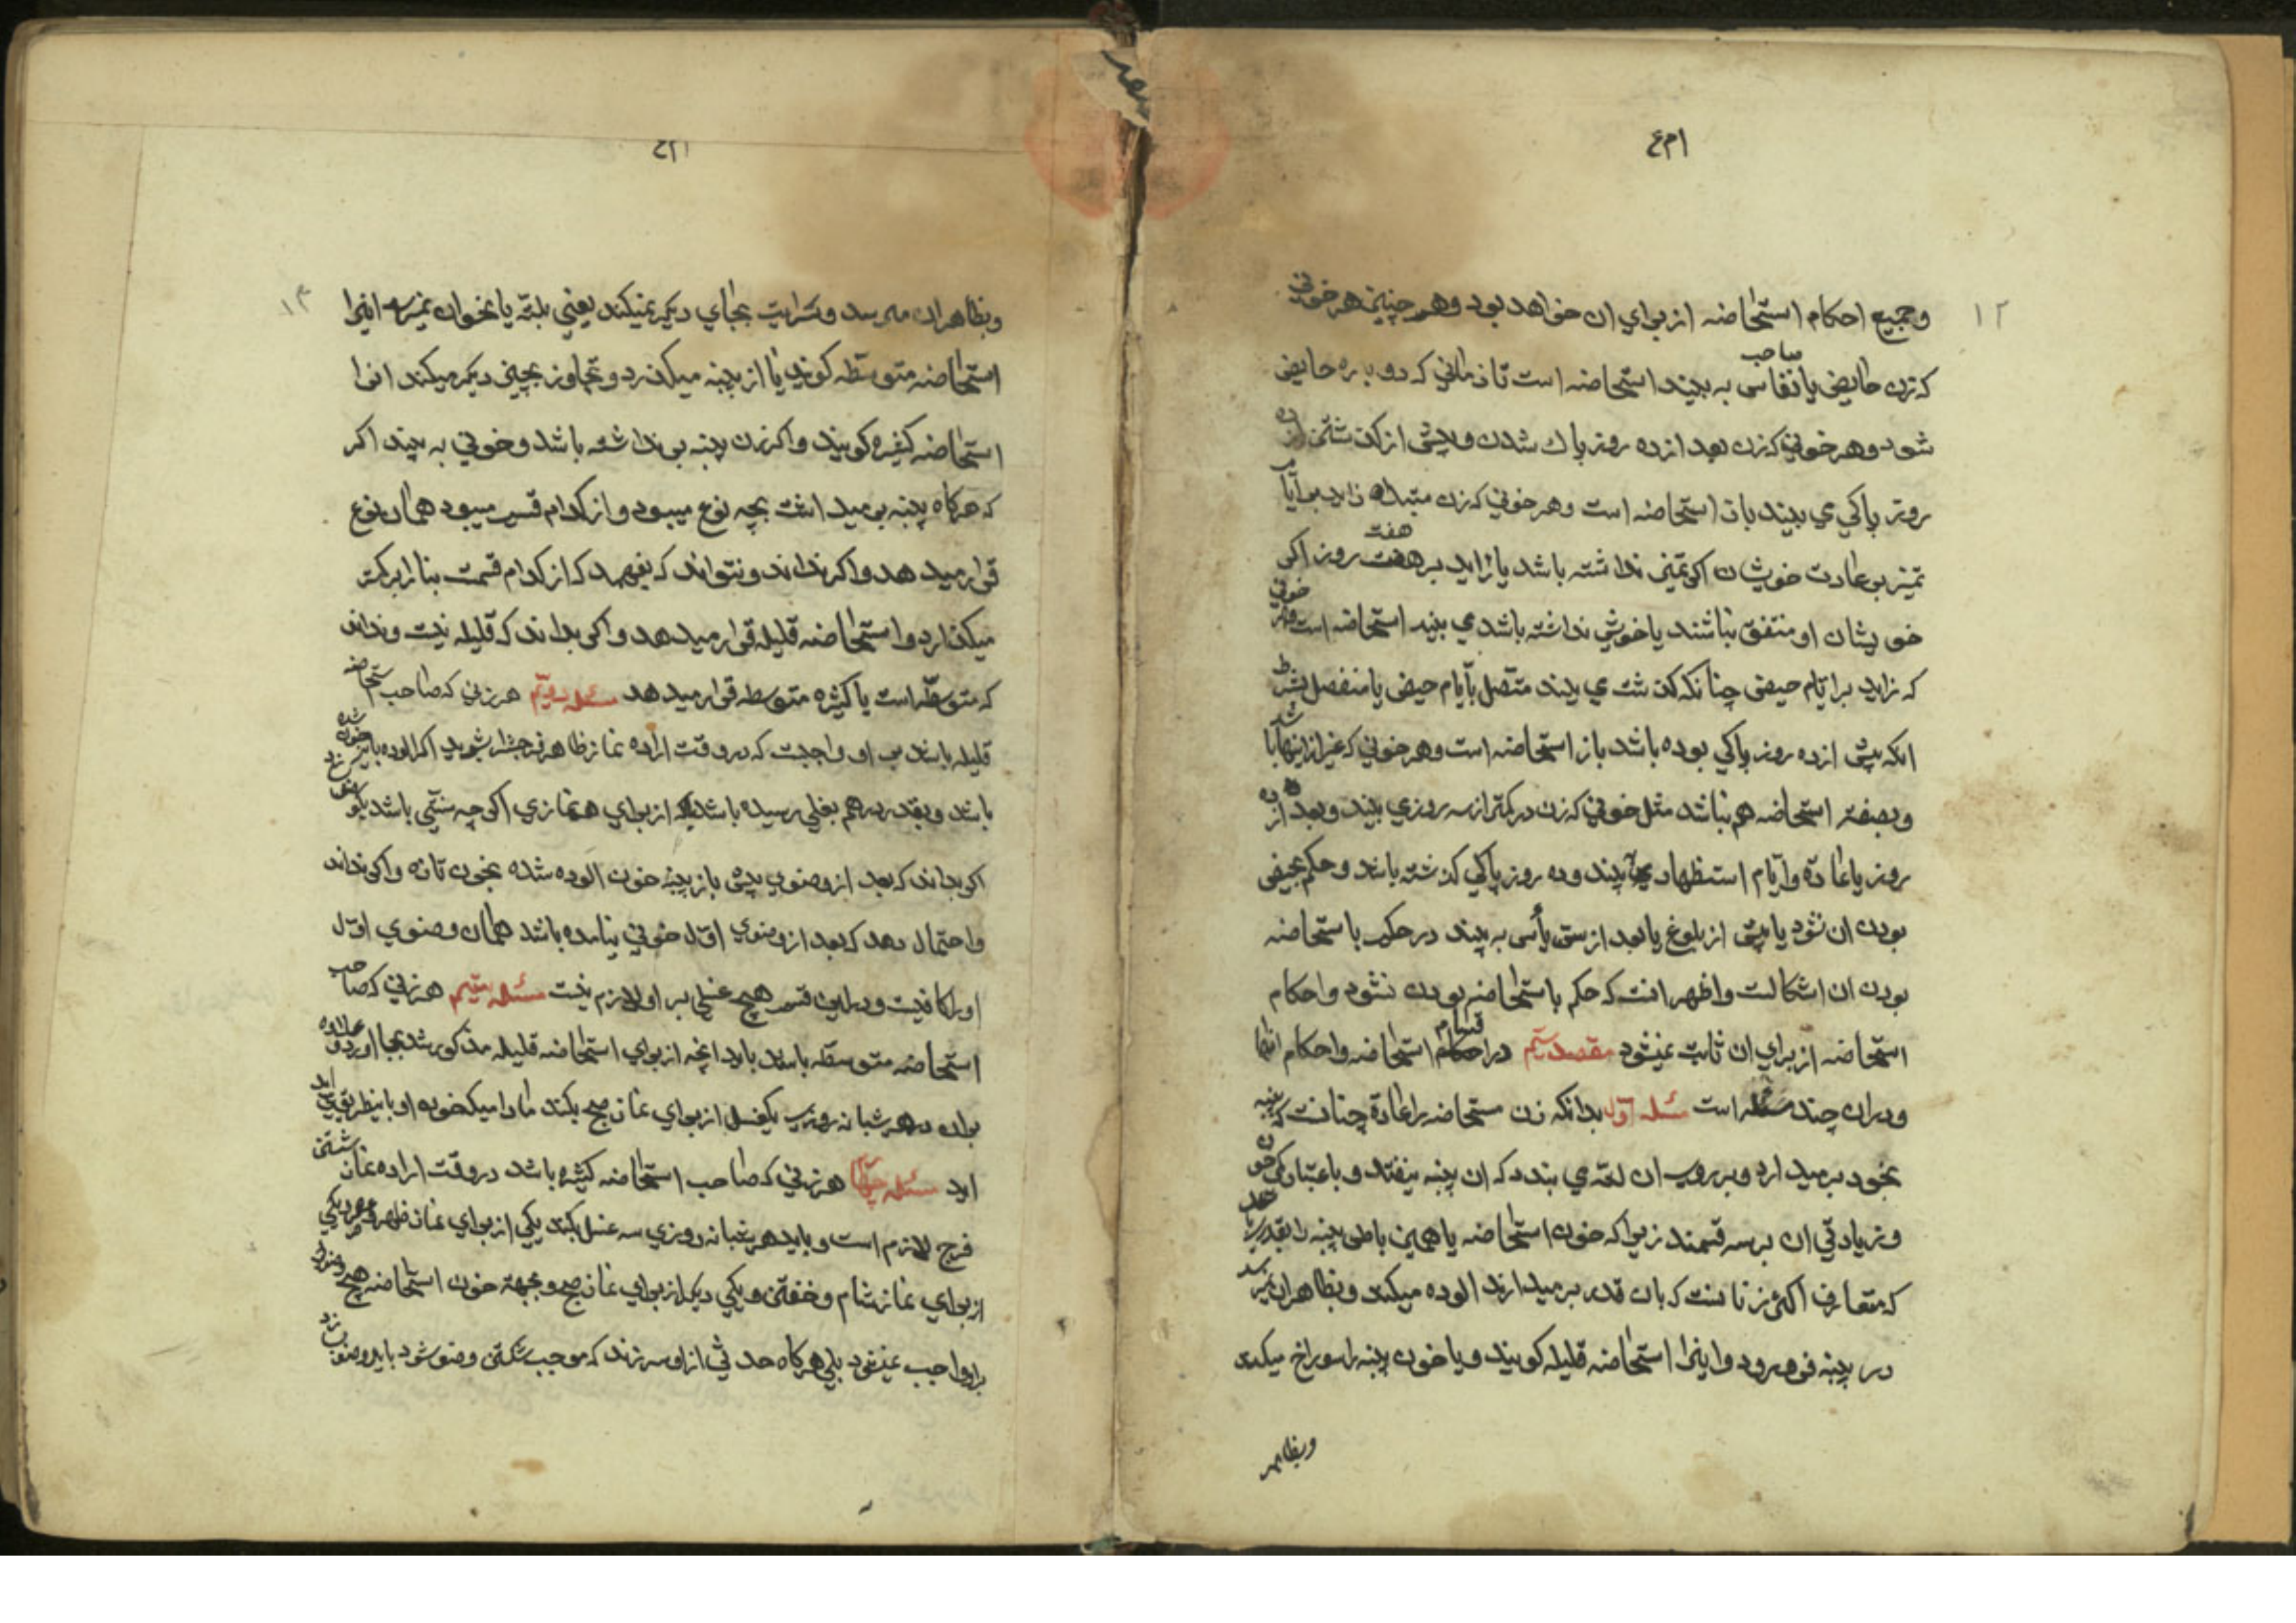 ۱م۴
۱۲
وجمیع احکام استحاضه از برای ان خواهد بود وهمچنین هر خونی
که زن حایض یا صاحب نفاس به بیند استحاضه است تا زمانی که دوباره حایض
شود وهر خونی که زن بعد از ده روز پاك شدن وپیش از گذشتن ده
روز پاکی می بیند باز استحاضه است وهر خونی که زن مبتداه زاید بر ایام
تمیز بر عادت خویشان اگر تمیز نداشته باشد یا زاید بر هفت روز اگر
خویشان او متفق نباشند یا خویش نداشته باشد می بیند استحاضه است وهر خونی
که زاید بر ایام حیض چنانکه گذشت می بیند متصل بایام حیض یا منفصل بشرط
انکه پیش از ده روز پاکی بوده باشد باز استحاضه است وهر خونی که غیر از اینها باشد
وبصفة استحاضه هم نباشد مثل خونی که زن در کمتر از سه روزی بیند وبعد از ده
روز یا عادة وایام استظهار می بیند وده روز پاکی گذشته باشد وحکم بحیض
بودن ان نشود یا پیش از بلوغ یا بعد از سن یأس به بیند در حکم باستحاضه
بودن ان اشکالست واظهر انست که حکم باستحاضه بودن نشود واحکام
استحاضه از برای ان ثابت نمیشود مقصد سیم در اقسام استحاضه واحکام انها
ودران چند مسئله است مسئله اول بدانکه زن مستحاضه را عادة چنانست که پنبه
بخود برمیدارد وبر روی ان لته می بندد که ان پنبه نیفتد وباعتبار کمی خون
وزیادتی ان بر سه قسمند زیرا که خون استحاضه یا همین باطن پنبه را بقدر
که متعارف اکثر زنانست که بان قدر برمیدارند الوده میکند وبظاهر ان نمیرسد
در پنبه فرو میرود واینرا استحاضه قلیله گویند ویا خون پنبه را سوراخ میکند
وبظاهر
۱م۴
۱۳
وبظاهر ان میرسد وسرایت بجای دیگر نمیکند یعنی بلته یا بخوان نمیرسد اینرا
استحاضه متوسطه گویند یا از پنبه میگذرد وتجاوز بچیز دیگر میکند انرا
استحاضه کثیره گویند واگر زن پنبه بر نداشته باشد وخونی به بیند اگر
که هرگاه پنبه برمیداشت بچه نوع میبود واز کدام قسم میبود همان نوع
قرار میدهد واگر نداند ونتواند که بفهمد که از کدام قسمت بنا را بر کمتر
میگذارد واستحاضه قلیله قرار میدهد واگر بداند که قلیله نیست ونداند
که متوسطه است یا کثیره متوسطه قرار میدهد مسئله دویم هر زنی که صاحب استحاضه
قلیله باشد بر او واجبست که در وقت اراده نماز ظاهر فرج را بشوید اگر الوده بخون شده
باشد وبقدر درهم بغلی رسیده باشد از برای هر نمازی اگر چه سنتی باشد وضو
اگر بداند که بعد از وضوی پیش باز پنبه خون الوده شده بخون تازه واگر نداند
واحتمال دهد که بعد از وضوی اول خونی نیامده باشد همان وضوی اول
او را کافیست ودر این قسم هیچ غسلی بر او لازم نیست مسئله سیم هر زنی که صاحب
استحاضه متوسطه باشد باید انچه از برای استحاضه قلیله مذکور شد بجا اورد وعلاوه
بران در هر شبانه روزی یکغسل از برای نماز صبح بکند مادامیکه خون او باینطریق می
اید مسئله چهارم هر زنی که صاحب استحاضه کثیره باشد در وقت اراده نماز شستن
فرج لازم است وباید هر شبانه روزی سه غسل بکند یکی از برای نماز ظهر وعصر ویکی
از برای نماز شام وخفتن ویکی دیگر از برای نماز صبح وبجهة خون استحاضه هیچ وضو
براو واجب نمیشود بلی هرگاه حدثی از او سر زند که موجب شکستن وضو شود باید وضو